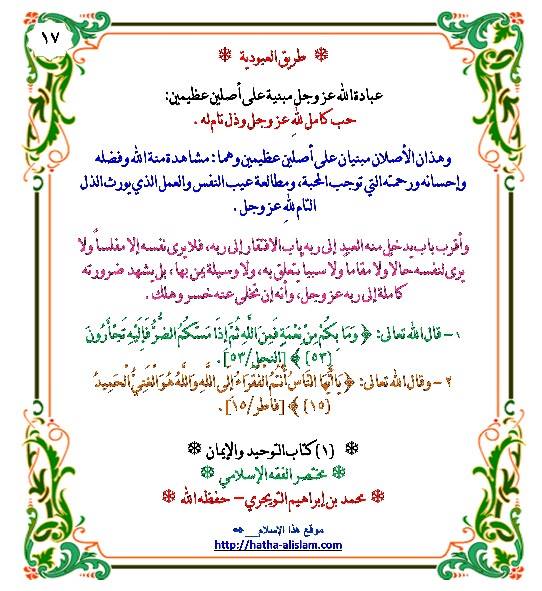 ١٧
❄ طريق العبودية ❄
عبادة الله عز وجل مبنية على أصلين عظيمين:
حب كامل للهِ عز وجل وذل تام له .
وهذان الأصلان مبنيان على أصلين عظيمين وهما : مشاهدة منة الله وفضله
وإحسانه ورحمته التي توجب المحبة، ومطالعة عيب النفس والعمل الذي يورث الذل
التام للهِ عز وجل .
وأقرب باب يدخل منه العبد إلى ربه باب الافتقار إلى ربه، فلا يرى نفسه إلا مفلساً ولا
يرى لنفسه حالا ولا مقاما ولا سببا يتعلق به، ولا وسيلة يمن بها ، بل يشهد ضرورته
كاملة إلى ربه عز وجل، وأنه إن تخلى عنه خسر وهلك .
١ – قال الله تعالى: ﴿ وَمَا بِكُمْ مِنْ نِعْمَةٍ فَمِنَ اللَّهِ ثُمَّ إِذَا مَسَّكُمُ الضُّرُّ فَإِلَيْهِ تَجْأَرُونَ
(٥٣) ﴾ [النحل/٥٣].
٢ – وقال الله تعالى: ﴿ يَاأَيُّهَا النَّاسُ أَنْتُمُ الْفُقَرَاءُ إِلَى اللَّهِ وَاللَّهُ هُوَ الْغَنِيُّ الْحَمِيدُ
(١٥) ﴾ [فاطر/١٥].
❄ (١) كتاب التوحيد والإيمان ❄
❄ مختصر الفقه الإسلامي ❄
❄ محمد بن إبراهيم التويجري – حفظه الله ❄
موقع هذا الإسلام__
http://hatha-alislam.com